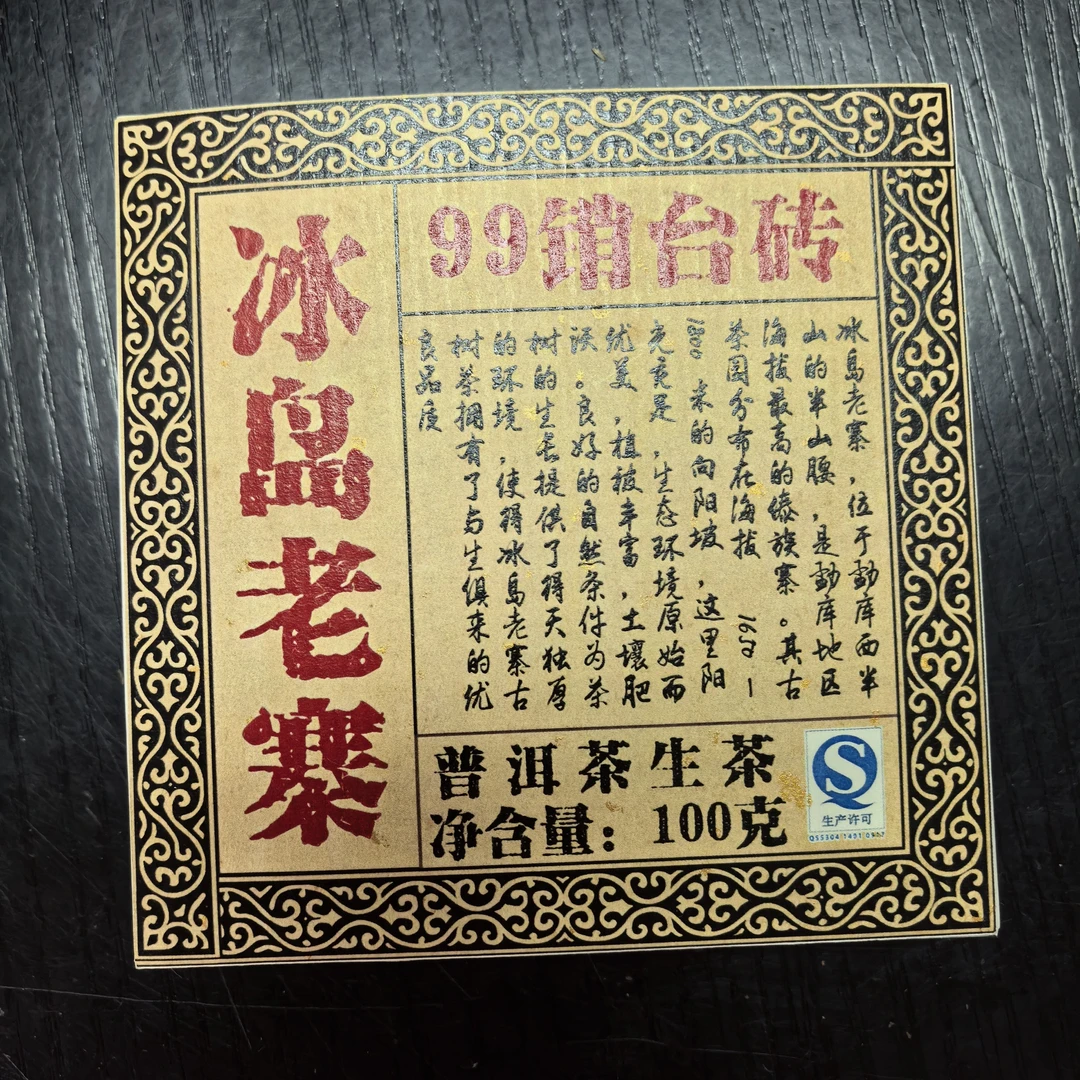 冰岛老寨
99销台砖
冰岛老寨，位于勐库西半
山的半山腰，是勐库地区
海拔最高的傣族寨。其古
茶园分布在海拔 1652—
米的向阳坡，这里阳
光充足，生态环境原始而
优美，植被丰富，土壤肥
沃。良好的自然条件为茶
树的生长提供了得天独厚
的环境，使得冰岛老寨古
树茶拥有了与生俱来的优
良品质
普洱茶生茶
净含量：100克
生产许可